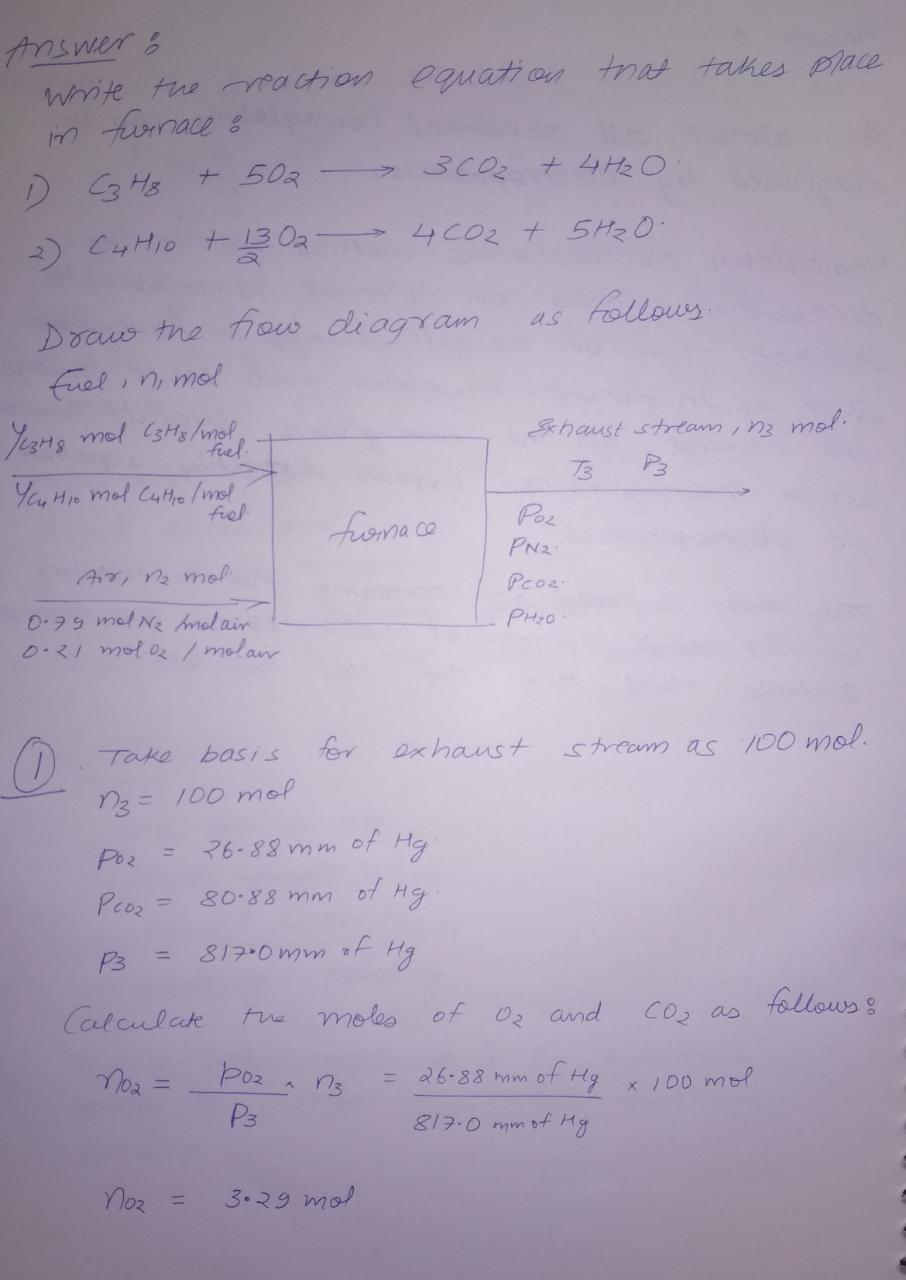 Answer :
Write the reaction equation that takes place
in furnace :
1) C3H8 + 5O2 ⟶ 3CO2 + 4H2O.
2) C4H10 + 13/2 O2 ⟶ 4CO2 + 5H2O.
Draw the flow diagram as follows.
fuel, n1 mol
YC3H8 mol C3H8/mol fuel.
YC4H10 mol C4H10/mol fuel.
Air, n2 mol
0.79 mol N2 /mol air
0.21 mol O2 /mol air
furnace
Exhaust stream, n3 mol.
T3 P3
PO2.
PN2.
PCO2.
PH2O.
① . Take basis for exhaust stream as 100 mol.
n3 = 100 mol
PO2 = 26.88 mm of Hg
PCO2 = 80.88 mm of Hg.
P3 = 817.0 mm of Hg
Calculate the moles of O2 and CO2 as follows:
nO2 = PO2/P3 × n3 = 26.88 mm of Hg/817.0 mm of Hg × 100 mol.
nO2 = 3.29 mol